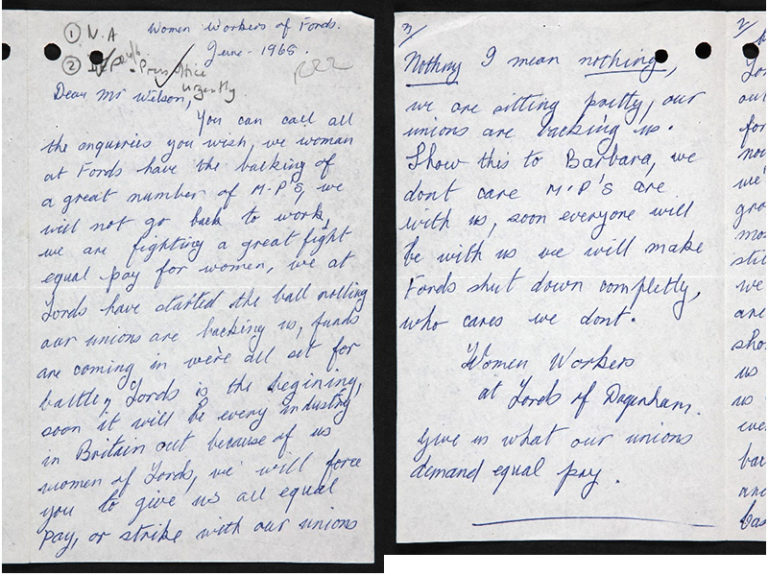 ① N.A
Women Workers of Fords.
June - 1968.
② Press Office
urgently
Dear Mr Wilson,
You can call all
the enquiries you wish, we woman
at Fords have the backing of
a great number of M.P'S, we
will not go back to work,
we are fighting a great fight
equal pay for women, we at
Fords have started the ball rolling
our unions are backing us, funds
are coming in we're all set for
battle, Fords is the begining,
soon it will be every industry
in Britain out because of us
women of Fords, we will force
you to give us all equal
pay, or strike with our unions
3/
Nothing I mean nothing,
we are sitting pretty, our
unions are backing us.
Show this to Barbara, we
dont care M.P'S are
with us, soon everyone will
be with us we will make
Fords shut down completly,
who cares we dont.
Women Workers
at Fords of Dagenham.
Give us what our unions
demand equal pay.
2/